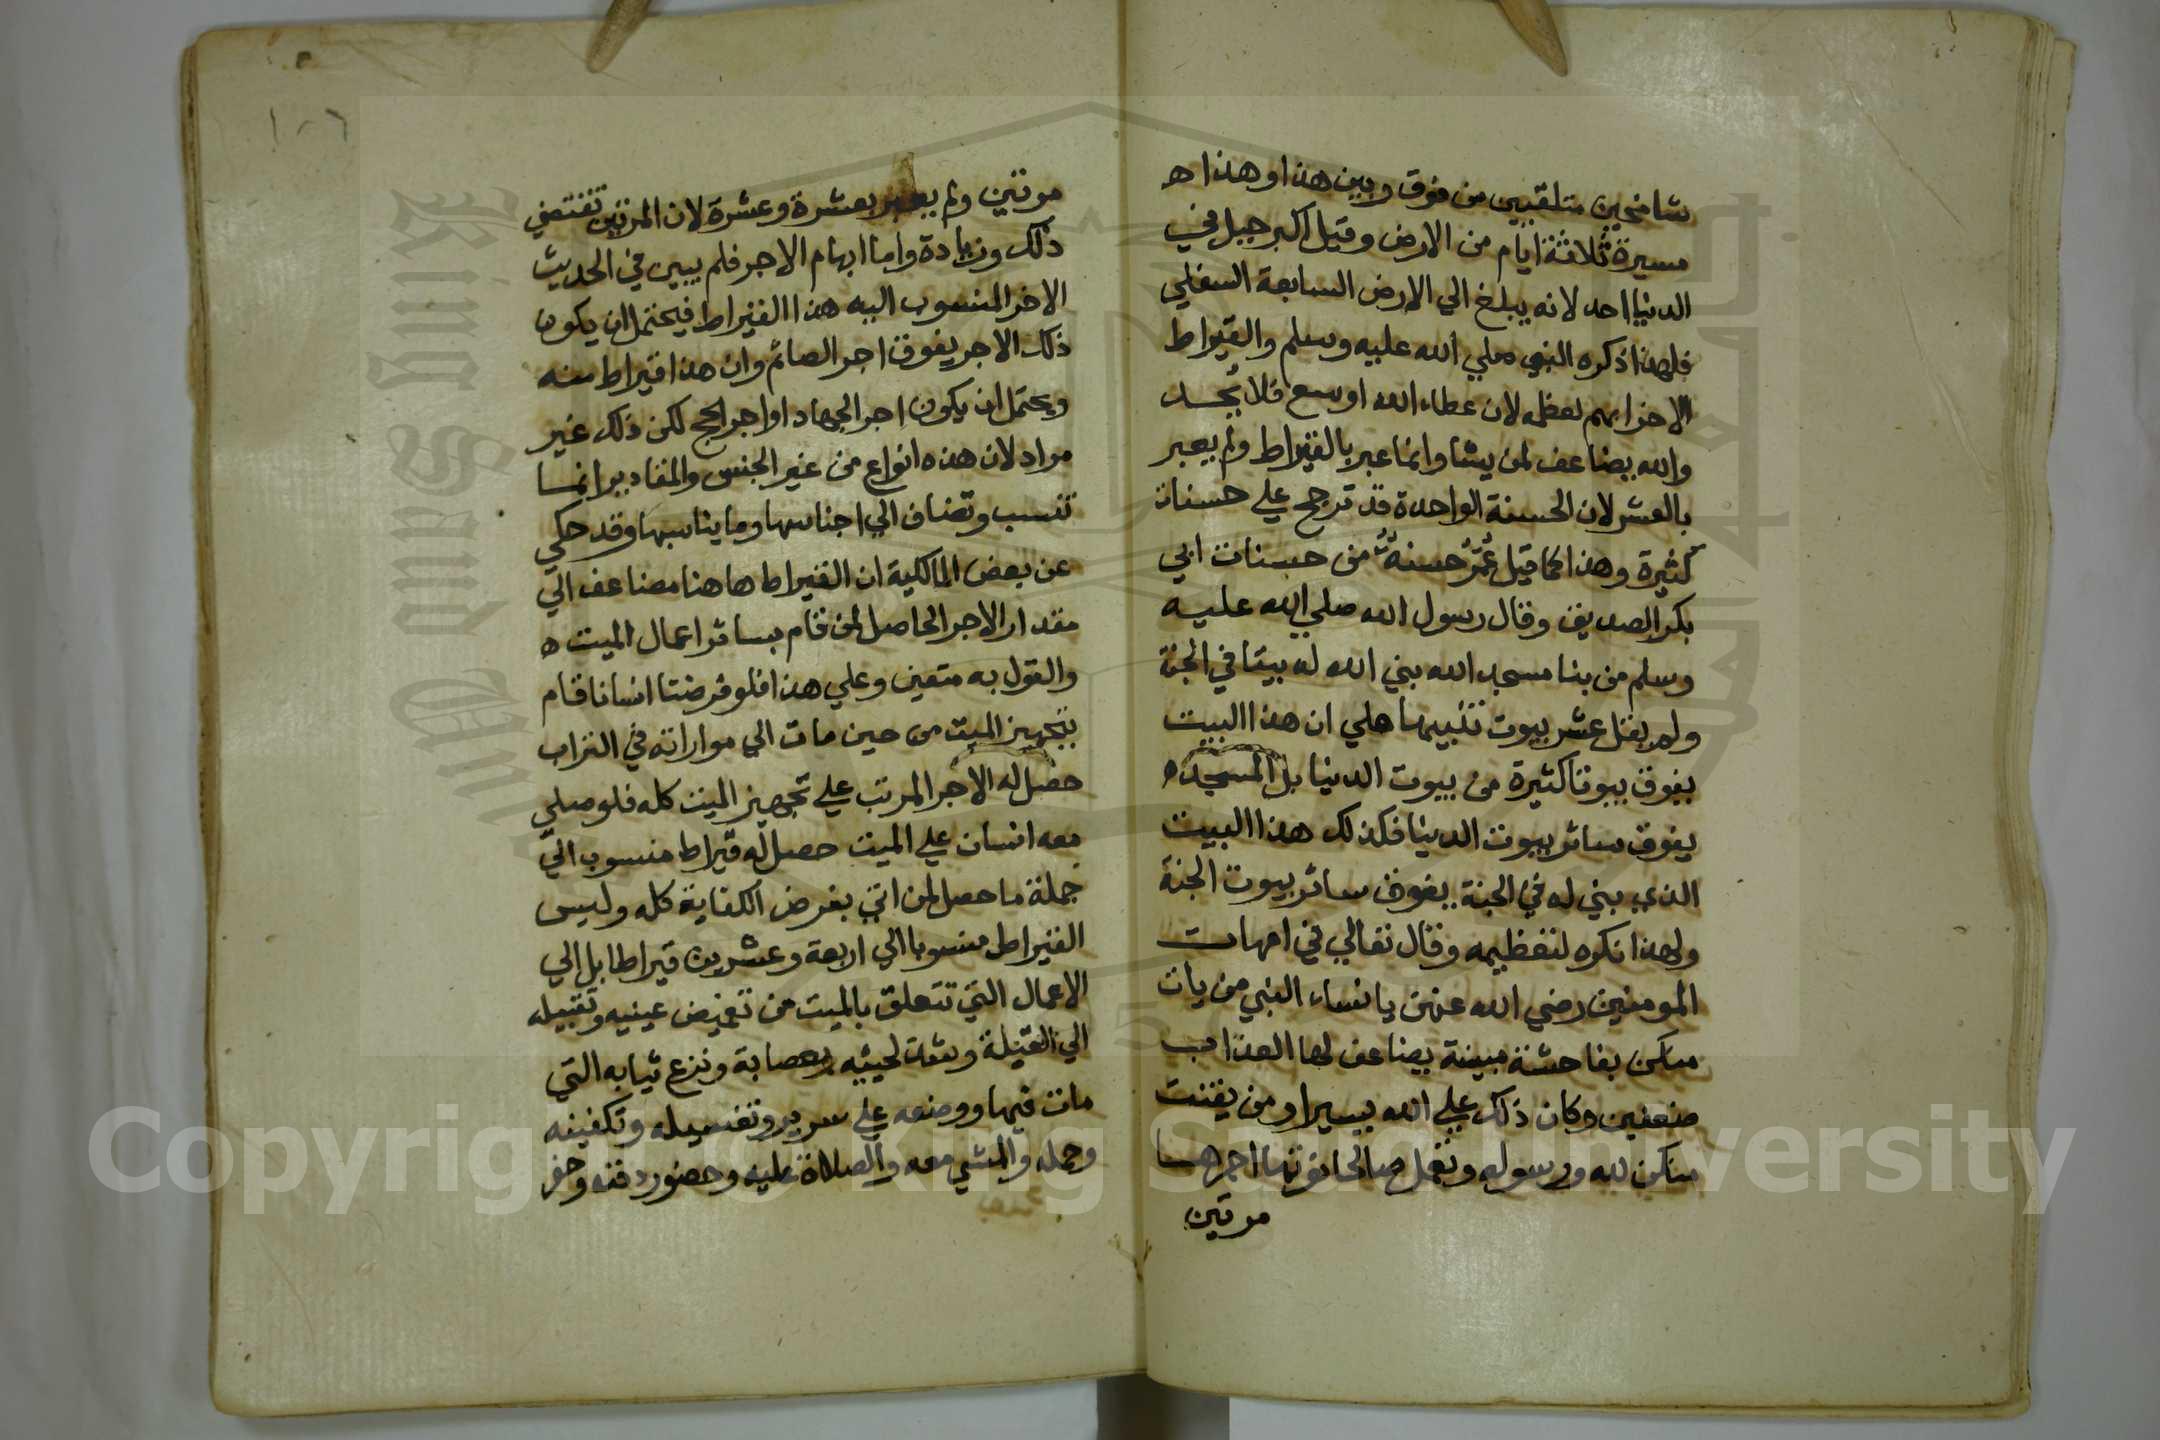 شامخين متلقيين من فوق وبين هذا وهذا ه
مسيرة ثلاثة ايام من الارض وقيل اكبر جبل في
الدنيا احد لانه يبلغ الي الارض السابعة السفلي
فلهذا ذكره النبي صلي الله عليه وسلم والقيراط
الاخر ابهم لعظمه لان عطاء الله اوسع فلا يُحد
والله يضاعف لمن يشا وانما عبر بالقيراط ولم يعبر
بالعشر لان الحسنة الواحدة قد ترجح علي حسنات
كثيرة وهذا كما قيل عُمَرُ حسنةٌ من حسنات ابي
بكر الصديق وقال رسول الله صلي الله عليه
وسلم من بنا مسجد الله بني الله له بيتا في الجنة
ولم يقل عشر بيوت تنبيها علي ان هذا البيت
يفوق بيوتا كثيرة من بيوت الدنيا بل المسجد ه
يفوق سائر بيوت الدنيا فكذلك هذا البيت
الذي بني له في الجنة يفوق سائر بيوت الجنة
ولهذا نكره لتعظيمه وقال تعالي في امهات
المومنين رضي الله عنهن يا نساء النبي من يات
منكن بفاحشة مبينة يضاعف لها العذاب
ضعفين وكان ذلك علي الله يسيرا ومن يقنت
منكن لله ورسوله وتعمل صالحا نوتها اجرها
مرتين
١٠٦
مرتين ولم يعبر بعشرة وعشرة لان المرتين تقتضي
ذلك وزيادة واما ابهام الاجر فلم يبين في الحديث
الاخر المنسوب اليه هذا القيراط فيحتمل ان يكون
ذلك الاجر يفوق اجر الصائم وان هذا قيراط منه
ويحتمل ان يكون اجر الجهاد او اجر الحج لكن ذلك غير
مراد لان هذه انواع من غير الجنس والمقادير انما
تنسب وتضاف الي اجناسها وما يناسبها وقد حكي
عن بعض المالكية ان القيراط هاهنا مضاعف الي
مقدار الاجر الحاصل لمن قام بسائر اعمال الميت ه
والقول به متعين وعلي هذا فلو فرضتا انسانا قام
بتجهيز الميت من حين مات الي مواراته في التراب
حصل له الاجر المرتب علي تجهيز الميت كله فلو صلي
معه انسان علي الميت حصل له قيراط منسوب الي
جملة ما حصل لمن اتي بفرض الكفاية كله وليس
القيراط منسوبا الي اربعة وعشرين قيراطا بل الي
الاعمال التي تتعلق بالميت من تغميض عينيه وتقبيله
الي القبلة وشد لحيته بعصابة ونزع ثيابه التي
مات فيها ووضعه علي سرير وتغسيله وتكفينه
وحمله والمشي معه والصلاة عليه وحضور دفنه وحفر
Copyright © King Saud University